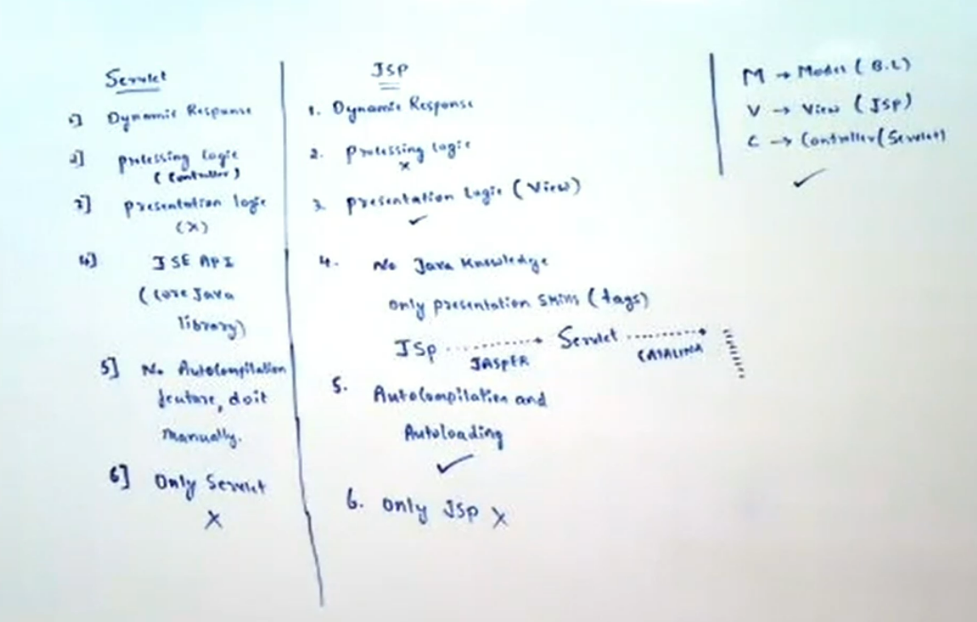 Servlet
1] Dynamic Response
2] processing logic
(Controller)
3] presentation logic
(X)
4] JSE API
(core Java
library)
5] No Autocompilation
feature, do it
manually.
6] Only Servlet
X
JSP
1. Dynamic Response
2. processing logic
X
3. presentation logic (View)
✓
4. No Java knowledge
only presentation skills (tags)
JSP ........→ Servlet ........→
JASPER CATALINA
5. Autocompilation and
Autoloading
✓
6. only JSP X
M → Model (B.L)
V → View (JSP)
C → Controller (Servlet)
✓